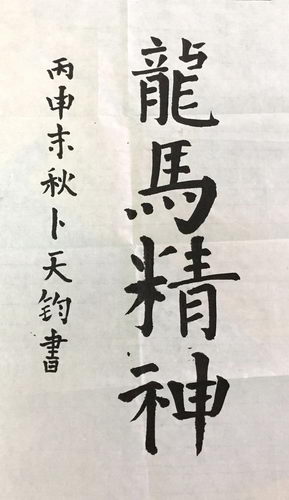 龍馬精神
丙申末秋卜天鈞書